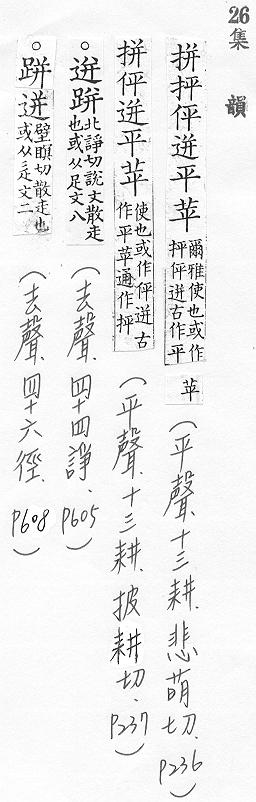 26
集韻
拼抨伻迸平苹 爾雅使也或作抨伻迸古作平苹(平聲、十三耕、悲萌切、P236)
拼伻迸平苹 使也或作伻迸古作平苹通作抨(平聲、十三耕、披耕切、P237)
。迸跰 北諍切說文散走也或从足文八(去聲、四十四諍、P605)
。跰迸 壁瞑切散走也或从辵文二(去聲、四十六徑、P608)